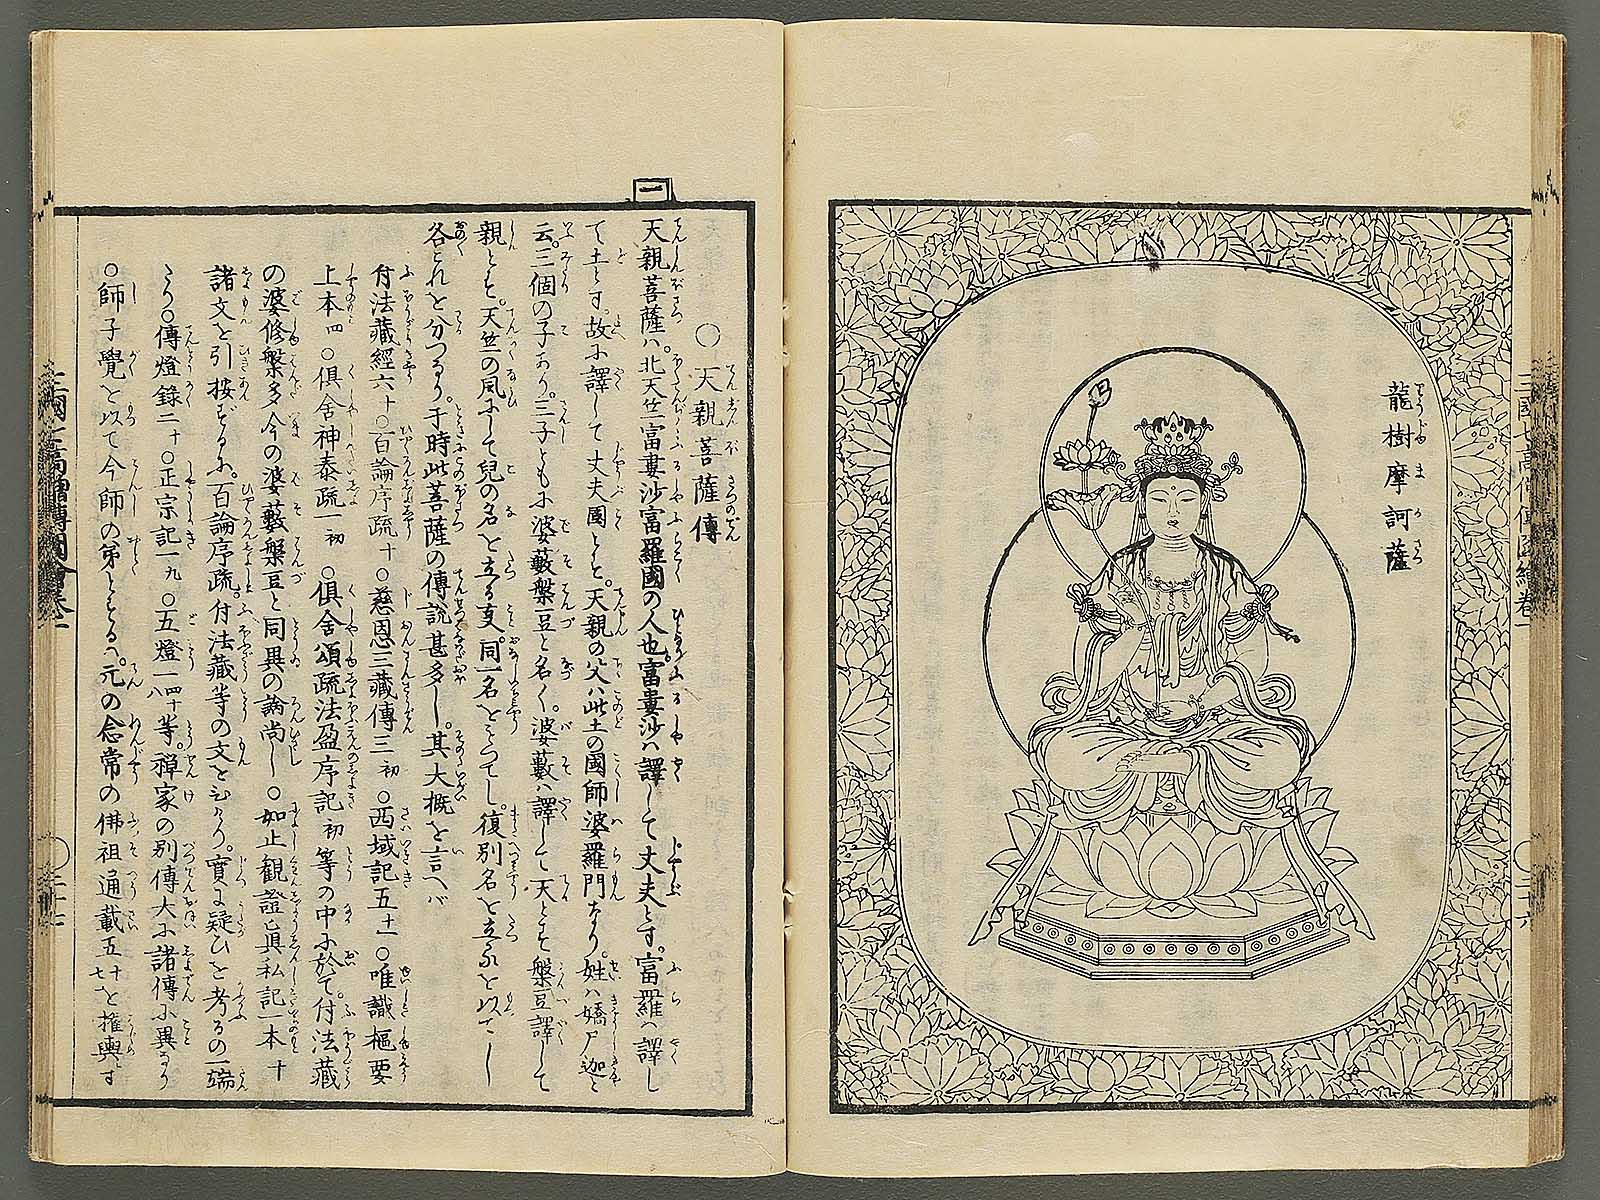 龍樹摩訶薩
一
○天親菩薩傳
天親菩薩ハ。北天竺富婁沙富羅國の人也。富婁沙ハ譯して丈夫とす。富羅ハ譯し
て土とす。故に譯して丈夫國とも。天親の父ハ此土の國師婆羅門なり。姓ハ嬌尸迦と
云。三個の子あり。三子ともに婆藪槃豆と名く。婆藪ハ譯して天とし槃豆譯して
親とも。天竺の風にして兒の名を立る事。同一名をもつてし。復別名を立るを以てし
各これを分つなり。于時此菩薩の傳説甚多し。其大概を言へバ
付法藏經六十○百論序疏十○慈恩三藏傳三初○西域記五十一○唯識樞要
上本四○倶舍神泰疏一初○倶舍頌疏法盈序記初等の中に於て。付法藏
の婆修槃多今の婆藪槃豆と同異の論尚し○如止觀證眞私記一本十
諸文を引按ずるに。百論序疏。付法藏等の文を
○傳燈錄二十○正宗記一九○五燈一四十八等。禪家の別傳大に諸傳に異なり
○師子覺を以て今師の弟とするハ。元の念常の佛祖通載五十七を權輿とす